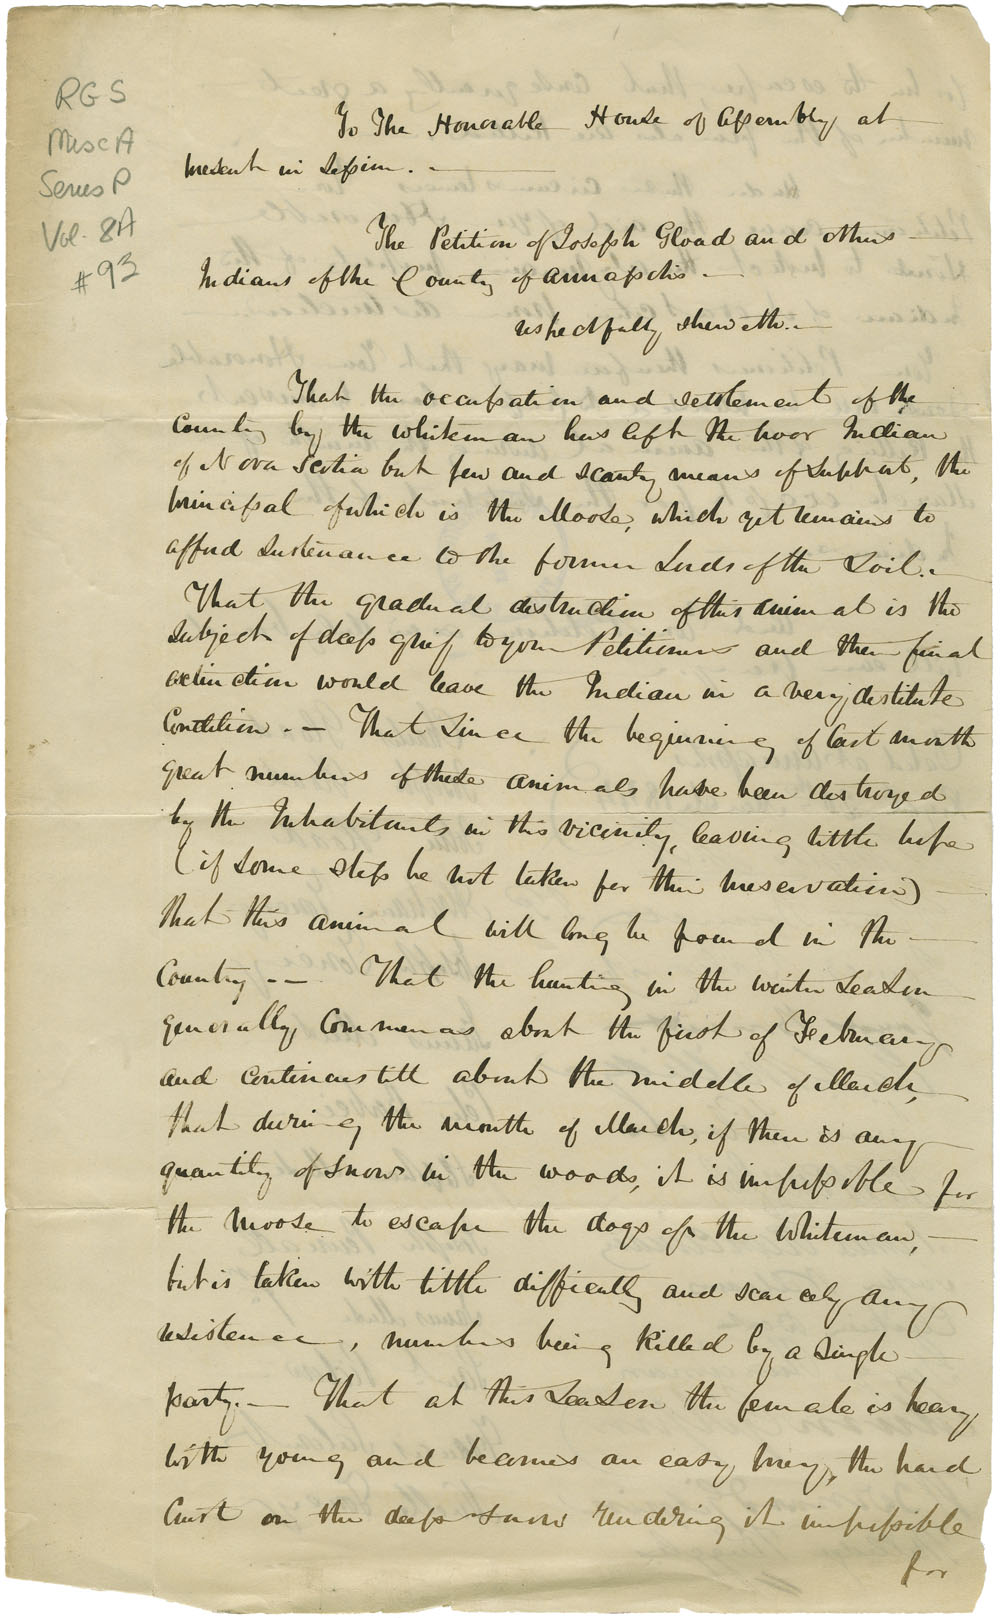 RG 5
Misc A
Series P
Vol. 8A
# 93
To The Honorable House of Assembly at
present in Session. -
The Petition of Joseph Gload and others
Indians of the County of Annapolis -
respectfully sheweth. -
That the occupation and settlement of the
Country by the whiteman has left the poor Indian
of Nova Scotia but few and scanty means of support, the
principal of which is the Moose, which yet remains to
afford sustenance to the former Lords of the Soil. -
That the gradual destruction of this animal is the
subject of deep grief to your Petitioners and their final
extinction would leave the Indian in a very distitute
Condition. - That since the beginning of last month
great numbers of these animals have been distroyed
by the Inhabitants in this vicinity, leaving little hope
(if some step be not taken for their preservation)
that this animal will long be found in the
Country -- That the hunting in the winter season
generally commences about the first of February
and continues till about the middle of March,
that during the month of March, if there is any
quantity of snow in the woods, it is impossible for
the Moose to escape the dogs of the Whiteman, -
but is taken with little difficulty and scarcely any
resistence, numbers being killed by a single
party. - That at this season the female is heavy
with young and becomes an easy prey, the hard
crust on the deep snow rendering it impossible
for